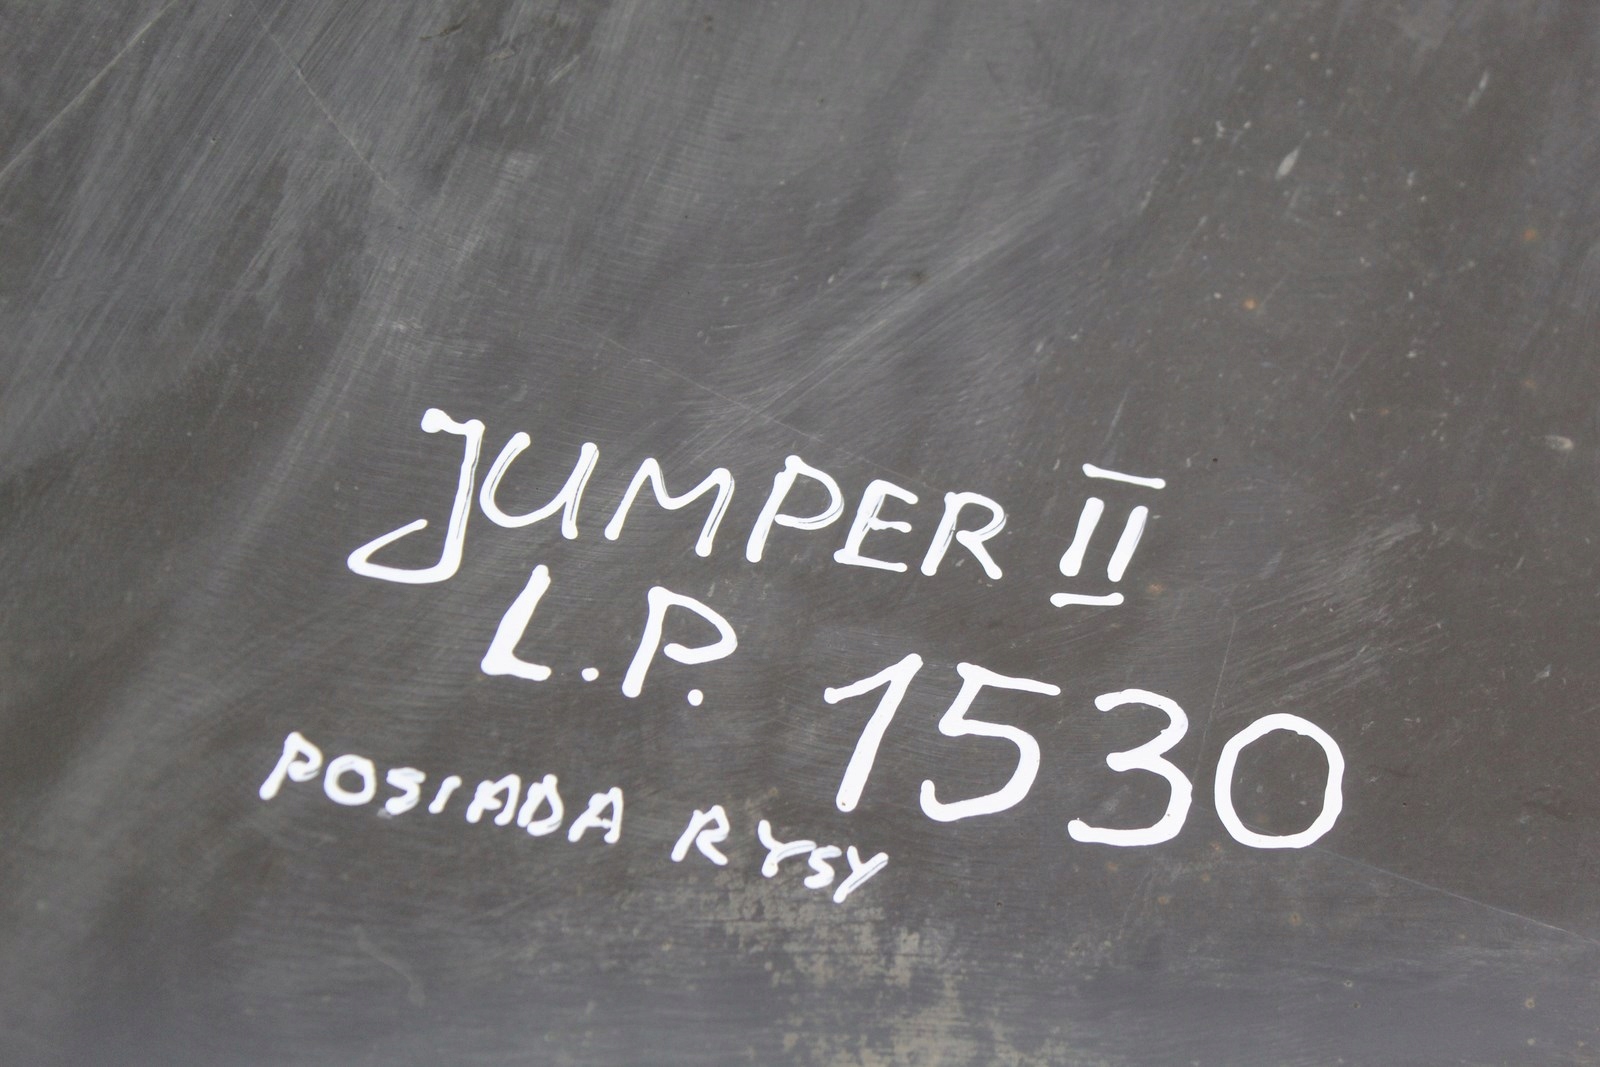 JUMPER II
L.P. 1530
POSIADA RYSY